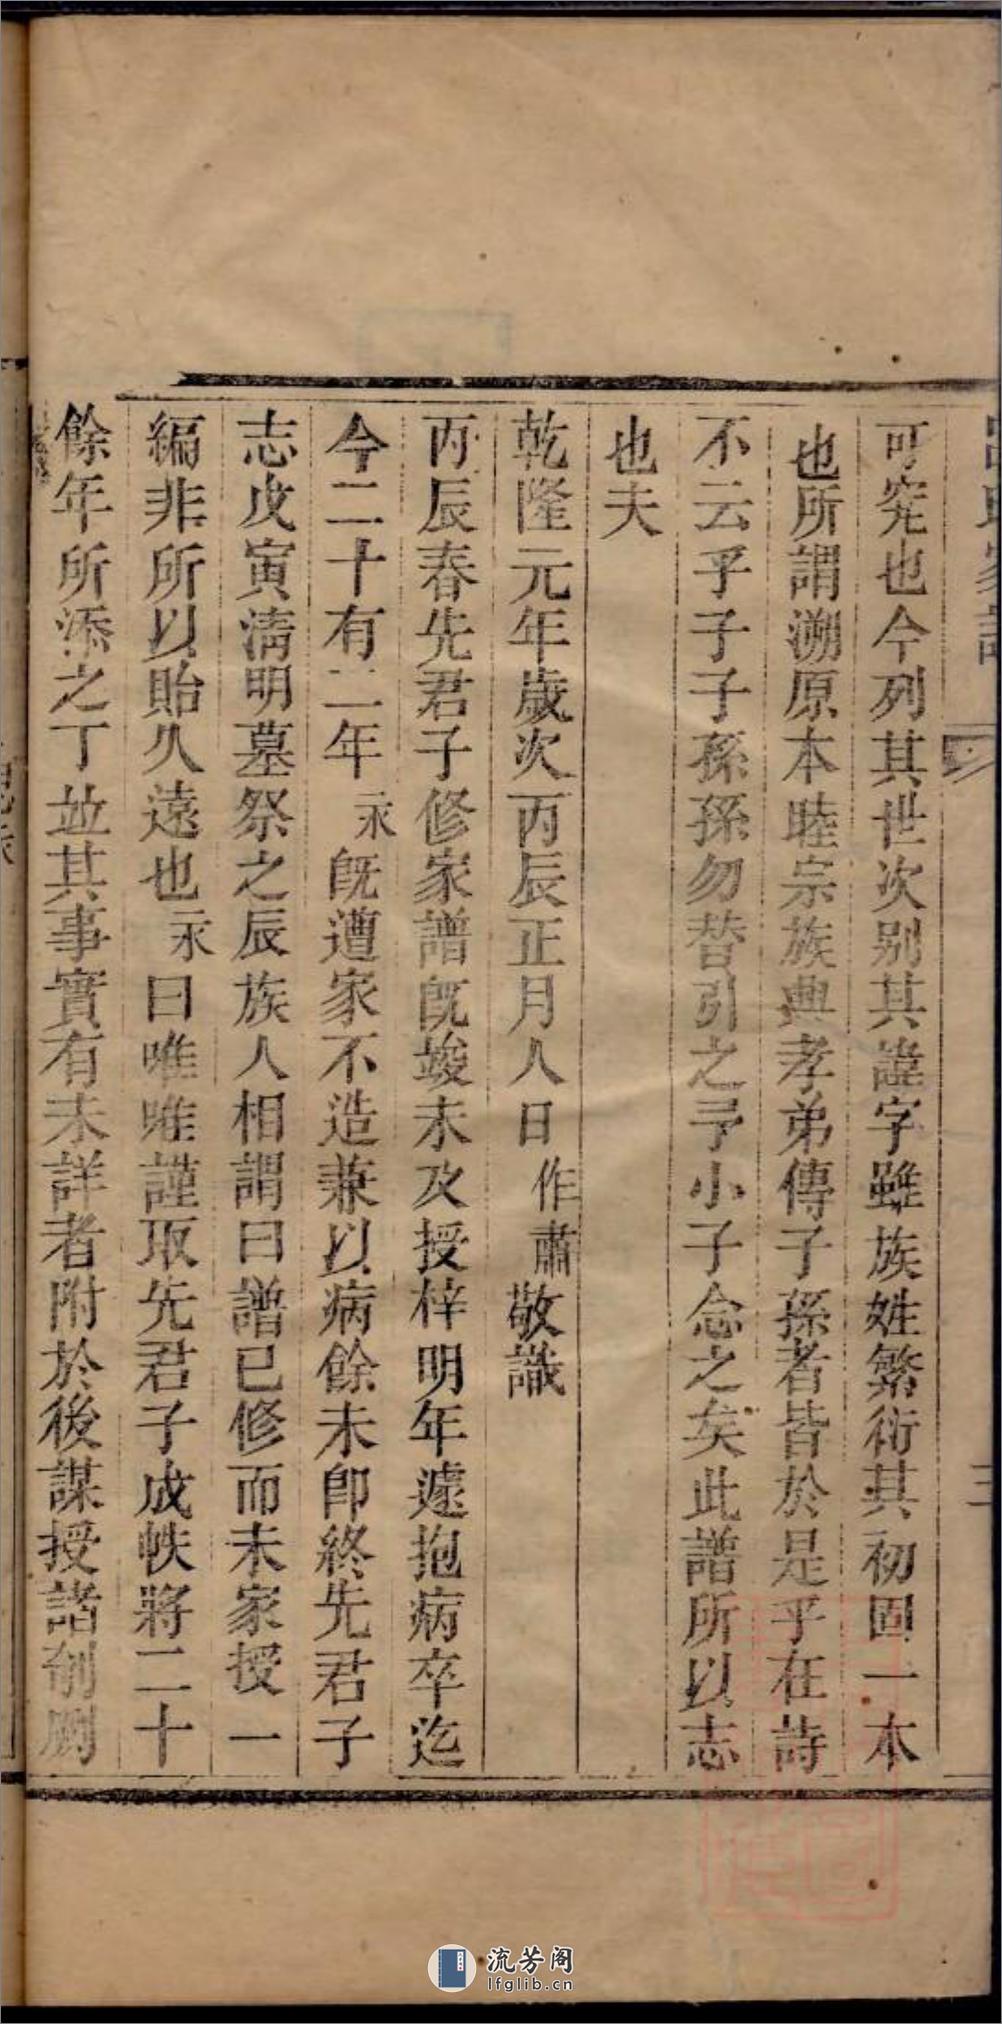 可究也今列其世次别其諱字雖族姓繁衍其初固一本
也所謂溯原本睦宗族典孝弟傳子孫者皆於是乎在詩
不云乎子子孫孫勿替引之予小子念之矣此譜所以志
也夫
乾隆元年歲次丙辰正月人日作肅敬識
丙辰春先君子修家譜旣竣未及授梓明年遽抱病卒迄
今二十有二年永旣遭家不造兼以病餘未卽終先君子
志戊寅淸明墓祭之辰族人相謂曰譜已修而未家授一
編非所以貽久遠也永曰唯唯謹取先君子成帙將二十
餘年所添之丁並其事實有未詳者附於後謀授諸剞劂
流芳阁
lfglib.cn